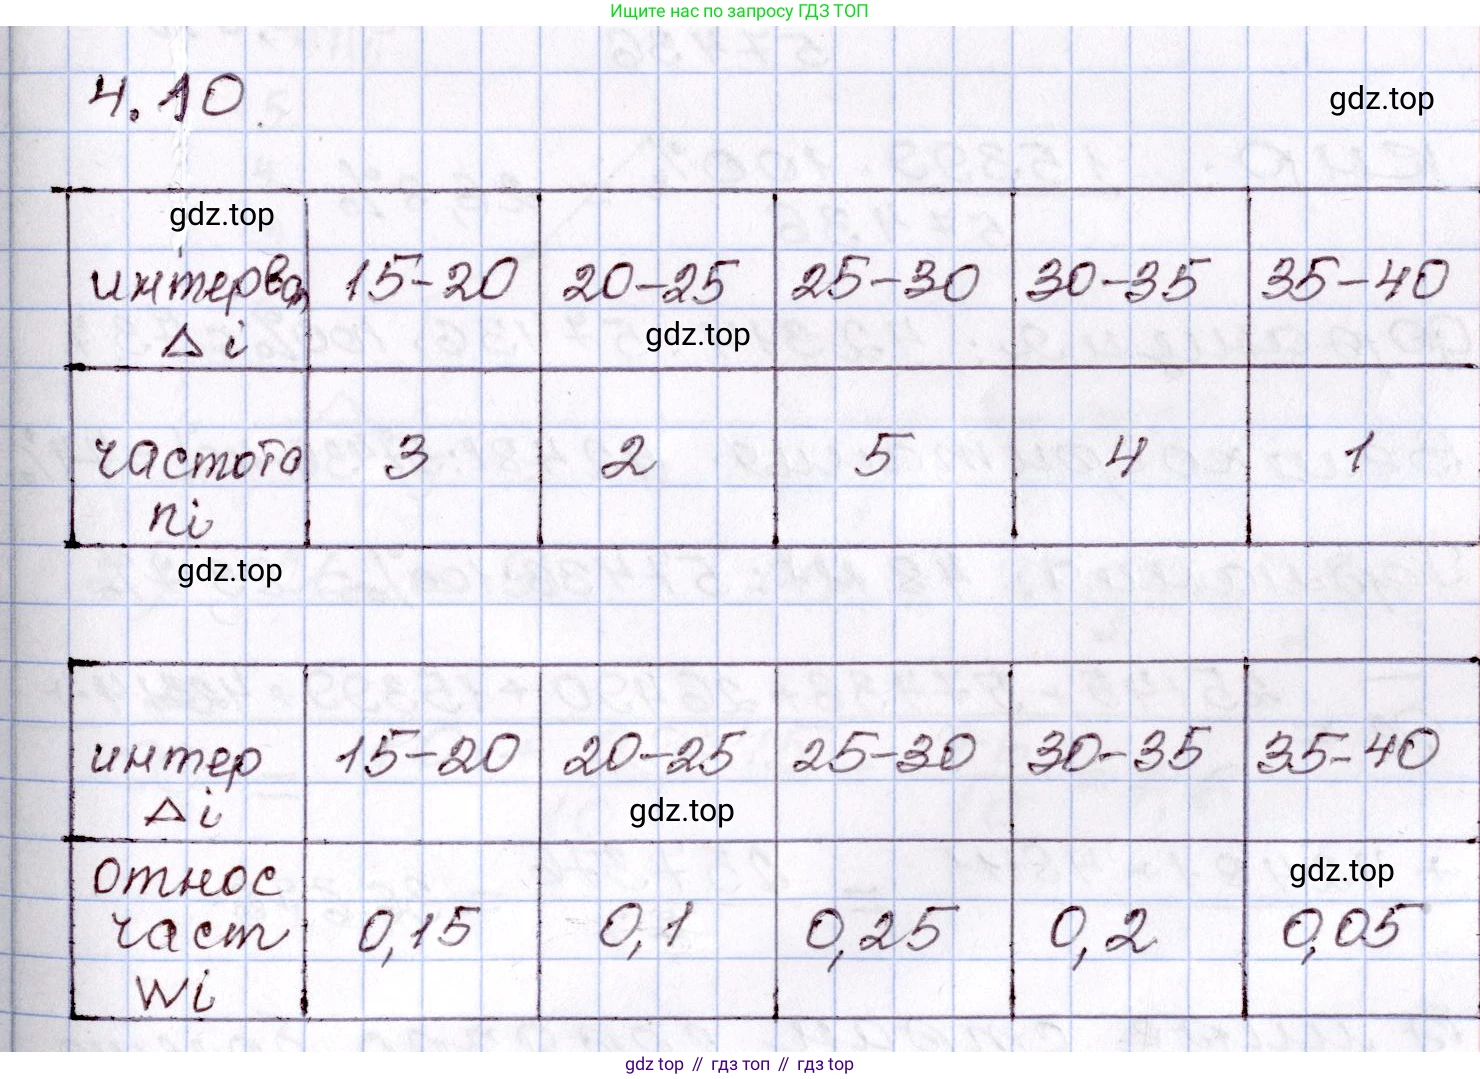 Ищите нас по запросу ГДЗ ТОП
4.10
gdz.top
gdz.top
интервал 15-20 20-25 25-30 30-35 35-40
Δi
gdz.top
частота 3 2 5 4 1
ni
gdz.top
интер 15-20 20-25 25-30 30-35 35-40
Δi
gdz.top
относ
gdz.top
част 0,15 0,1 0,25 0,2 0,05
wi
gdz top // гдз топ // гдз top